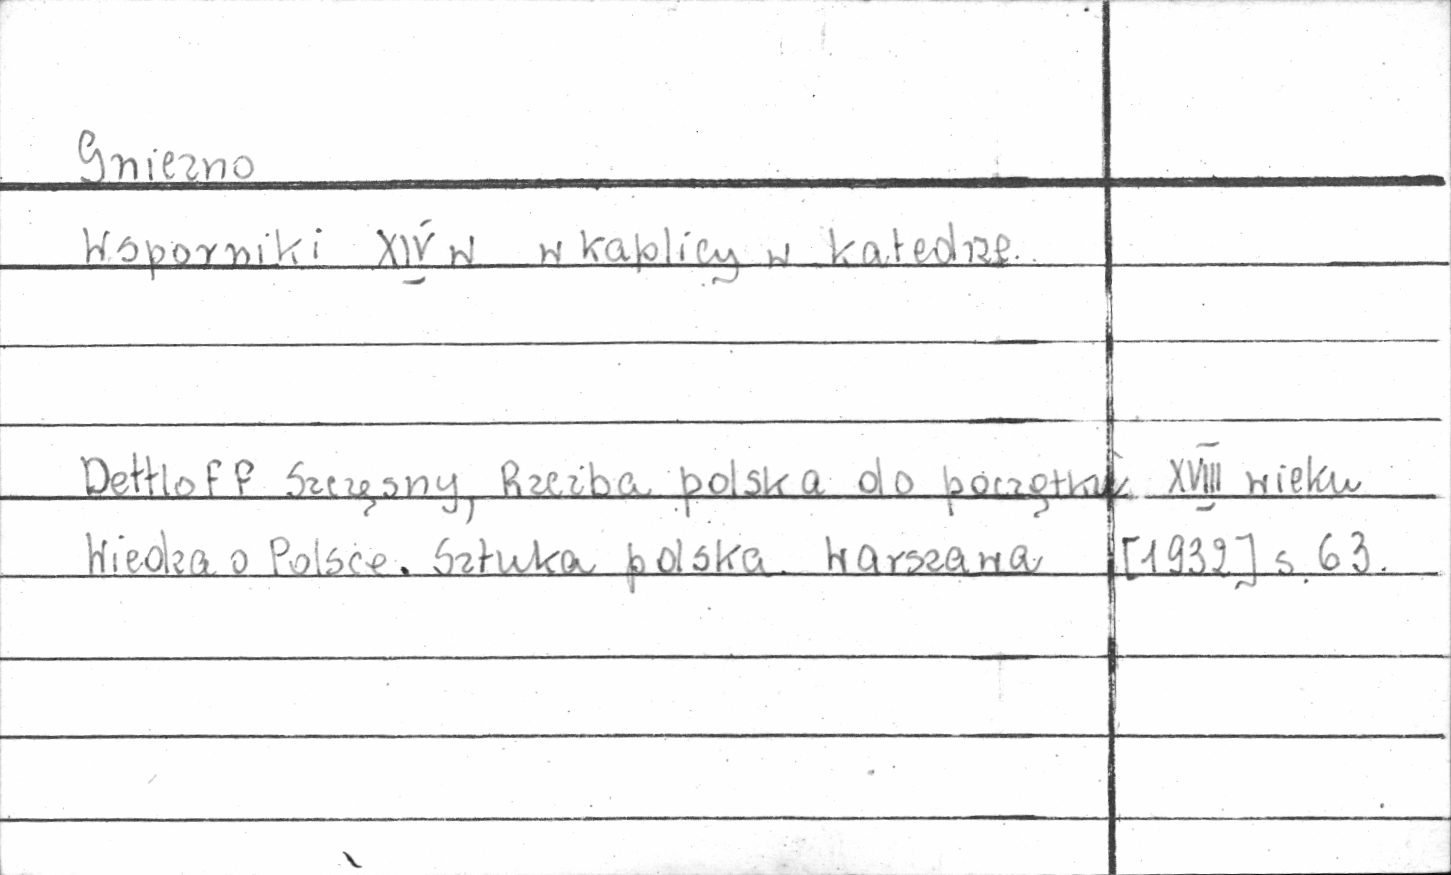 Gniezno
Wsporniki XIV w w kaplicy w katedrze.
Dettloff Szczęsny, Rzeźba polska do początku XVIII wieku
Wiedza o Polsce. Sztuka polska. Warszawa [1932] s. 63.